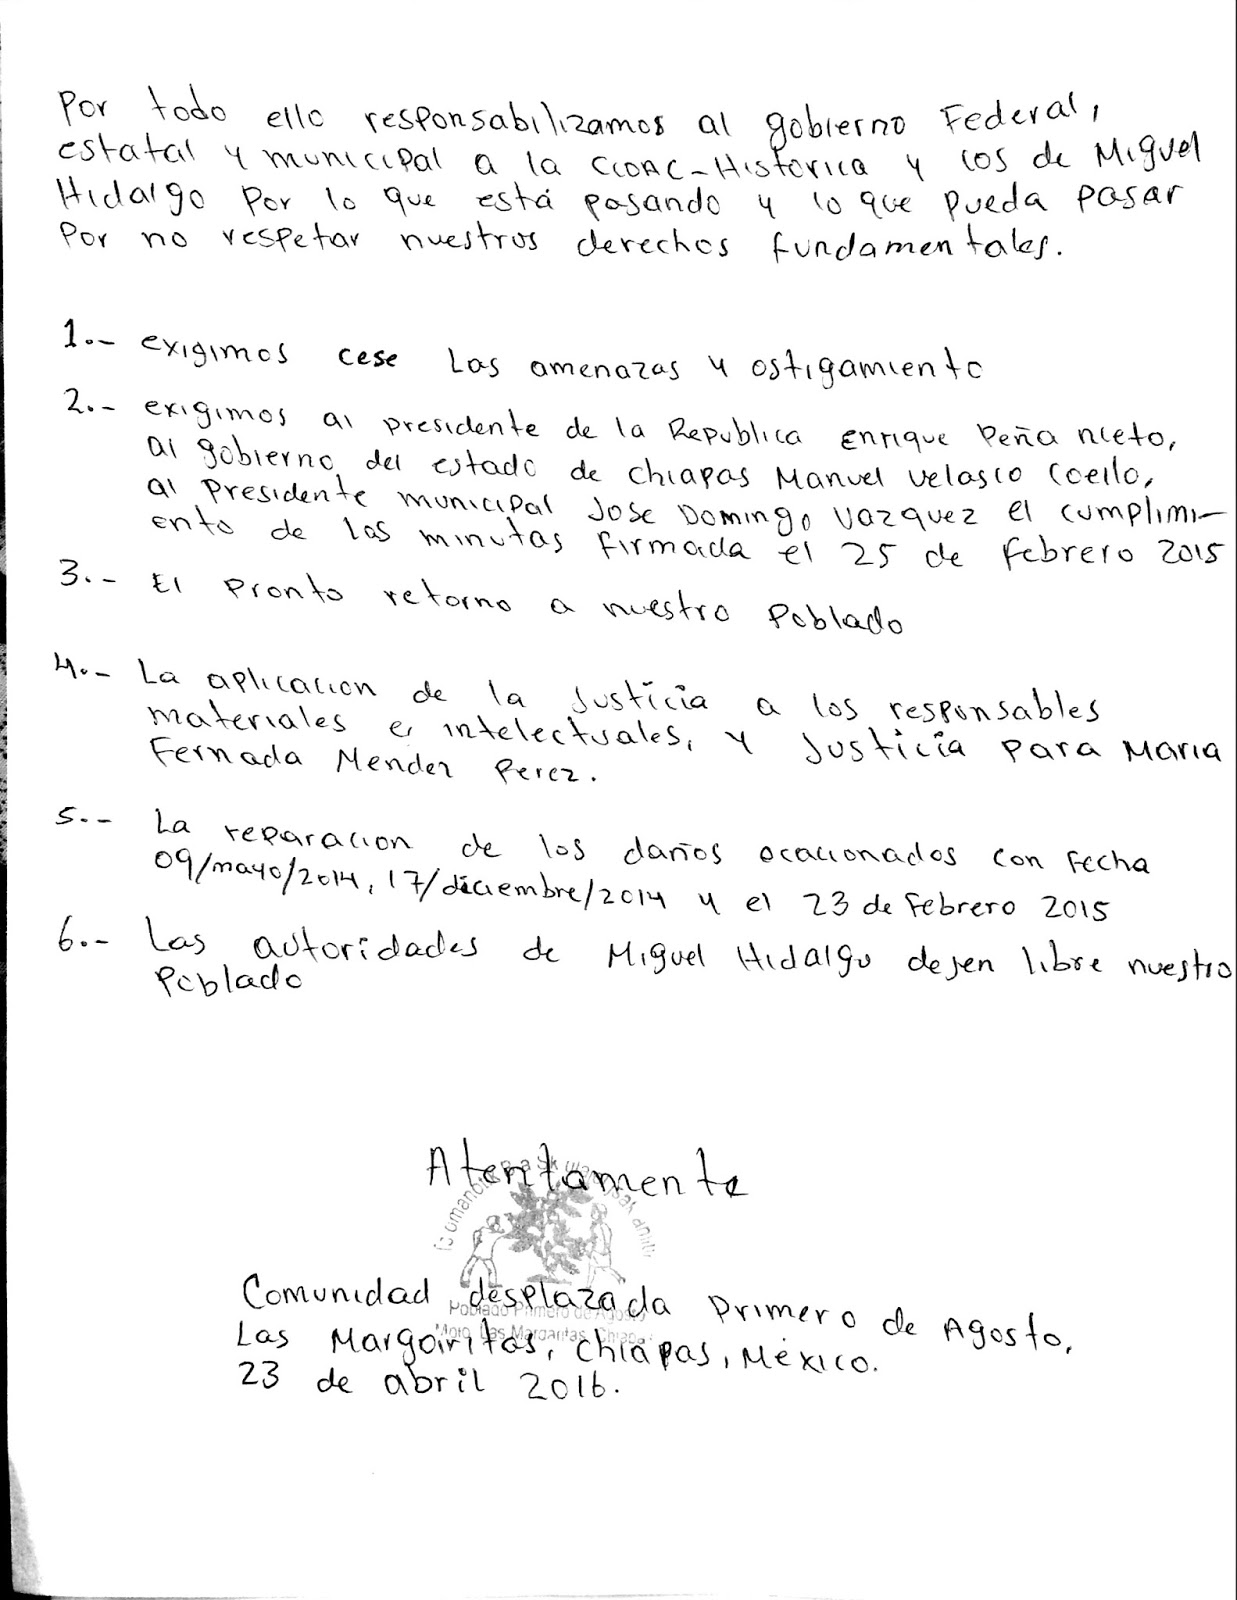 Por todo ello responsabilizamos al gobierno Federal,
estatal y municipal a la CIOAC-Historica y los de Miguel
Hidalgo Por lo que está pasando y lo que pueda pasar
Por no respetar nuestros derechos fundamentales.
1.- exigimos cese Las amenazas y ostigamiento
2.- exigimos al presidente de la Republica Enrique Peña Nieto,
al gobierno del estado de chiapas Manuel Velasco Coello,
al Presidente municipal Jose Domingo Vazquez el cumplimi-
ento de las minutas firmada el 25 de febrero 2015
3.- El Pronto retorno a nuestro Poblado
4.- La aplicacion de la Justicia a los responsables
materiales e intelectuales, y Justicia para Maria
Fernada Mendez Perez.
5.- La reparacion de los daños ocacionados con fecha
09/mayo/2014, 17/diciembre/2014 y el 23 de Febrero 2015
6.- Las autoridades de Miguel Hidalgo dejen libre nuestro
Poblado
Atentamente
Comunidad desplazada Primero de Agosto,
Poblado Primero de Agosto
Las Margaritas, Chiapas, México.
Mpio. Las Margaritas, Chiapas
23 de abril 2016.